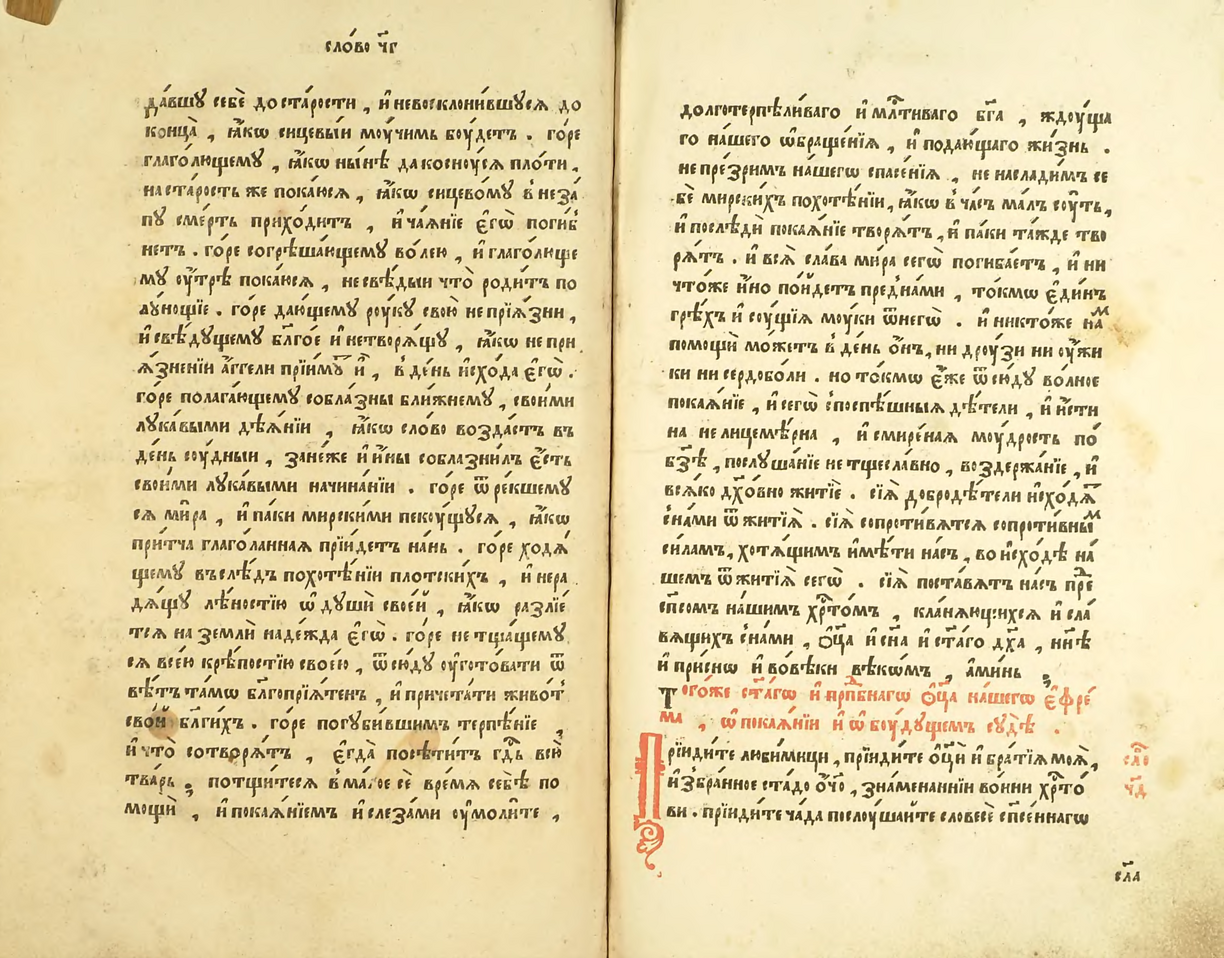 сло́во ч҃г
да́вшꙋ себѐ до ста́рости , и҆ невосклони́вшꙋсѧ до
конца̀ , ꙗ҆́кѡ сицевы́и моу́чимь боу́детъ . го́ре
глаго́лющемꙋ , ꙗ҆́кѡ ны́нѣ да коснꙋ́сѧ пло́ти ,
на ста́рость же пока́юсѧ , ꙗ҆́кѡ сицево́мꙋ в̾неза́
пꙋ сме́рть прихо́дитъ , и҆ ча́ѧнїе є҆гѡ̀ поги́б̾
нетъ . го́ре согрѣша́ющемꙋ во́лею , и҆ глаго́люще
мꙋ ѹ҆́трѣ пока́юсѧ , не свѣ́дыи что̀ роди́тъ по
лꙋно́щїе . го́ре даю́щемꙋ роу́кꙋ свою̀ непрїѧ́зни ,
и҆ свѣ́дꙋщемꙋ бл҃го́е и҆ нетворѧ́щꙋ , ꙗ҆́кѡ непри
ѧ́зненїи а҆́ггели прїи́мꙋт и҆̀ , в̾ де́нь и҆схо́да є҆гѡ̀ .
го́ре полага́ющемꙋ собла́зны бли́жнемꙋ , свои́ми
лꙋка́выми дѣѧ́нїи , ꙗ҆́кѡ сло́во возда́стъ въ
де́нь соу́дныи , зане́же и҆ и҆́ны соблазни́лъ є҆́сть
свои́ми лꙋка́выми начина́нїи . го́ре ѿре́кшемꙋ
сѧ ми́ра , и҆ па́ки мирски́ми пекоу́щꙋсѧ , ꙗ҆́кѡ
при́тча глаго́ланнаѧ прїи́детъ на́нь . го́ре ходѧ́
щемꙋ въслѣ́дъ похотѣ́нїи плотски́хъ , и҆ нера
дѧ́щꙋ лѣ́ностїю ѡ҆ дꙋшѝ свое́й , ꙗ҆́кѡ разлїе́
тсѧ на землѝ наде́жда є҆гѡ̀ . го́ре не тща́щемꙋ
сѧ все́ю крѣ́постїю свое́ю , ѿсю́дꙋ ѹ҆гото́вати ѿ
вѣ́тъ та́мѡ бл҃гопрїѧ́тенъ , и҆ причета́ти живо́т̾
сво́й бл҃ги́хъ . го́ре погꙋби́вшимъ терпѣ́нїе ,
и҆ что̀ сотворѧ́тъ , є҆гда̀ посѣти́тъ гд҇ь всю̀
тва́рь , потщи́тесѧ в̾ ма́лое сѐ вре́мѧ себѣ̀ по
мощѝ , и҆ покаѧ́нїемъ и҆ слеза́ми ѹ҆моли́те ,
долготерпѣли́ваго и҆ мл҇тиваго бг҃а , ждоу́ща
го на́шего ѡ҆браще́нїѧ , и҆ подаю́щаго жи́знь .
не пре́зримъ на́шегѡ спасе́нїѧ , не наслади́мъ се
бѐ мирски́хъ похотѣ́нїи, ꙗ҆́кѡ в̾ ча́съ ма́лъ соу́ть,
и҆ послѣдѝ покаѧ́нїе творѧ́тъ , и҆ па́ки та́жде тво
рѧ́тъ . и҆ всѧ̀ сла́ва ми́ра сегѡ̀ погиба́етъ , и҆ ни
что́же и҆́но по́йдетъ пред̾на́ми , то́кмѡ є҆ди́нъ
грѣ́хъ и҆ соу́щїѧ моу́ки ѿ негѡ̀ . и҆ никто́же наⷨ
помощѝ мо́жетъ в̾ де́нь ѻ҆́нъ , ни дроу́зи ни ѹ҆́жи
ки ни сердобо́ли . но то́кмѡ є҆́же ѿсю́дꙋ во́лное
покаѧ́нїе , и҆ сегѡ̀ споспѣ́шныѧ дѣ́тели , и҆ и҆́сти
на нелицемѣ́рна , и҆ смире́наѧ моу́дрость по́
бз҃ѣ , послꙋша́нїе не тщесла́вно , воздержа́нїе , и҆
всѧ́ко дх҃о́вно житїѐ . сїѧ̀ добродѣ́тели и҆схо́дѧⷮ
с̾на́ми ѿ житїѧ̀ . сїѧ̀ сопроти́вѧтсѧ сопроти́вныⷨ
си́ламъ, хотѧ́щимъ и҆мѣ́ти на́съ , во и҆схо́дѣ на́
шемъ ѿ житїѧ̀ сегѡ̀ . сїѧ̀ поста́вѧтъ на́съ преⷣ
сп҃сомъ на́шимъ хр҇то́мъ , кла́нѧющихсѧ и҆ сла́
вѧщихъ с̾на́ми , ѻ҆ц҃а̀ и҆ сн҃а и҆ ст҃а́го дх҃а , нн҃ѣ
и҆ при́снѡ и҆ во вѣ́ки вѣкѡ́мъ , а҆ми́нь ⁏
Того́же ст҃а́гѡ и҆ прⷣпбнагѡ ѻ҆ц҃а̀ на́шегѡ є҆фре́
ма , ѡ҆ покаѧ́нїи и҆ ѡ҆ боу́дꙋщемъ сꙋдѣ̀ .
Прїиди́те люби́мици , прїиди́те ѻ҆ц҃ы̀ и҆ бра́тїѧ моѧ̀ ,
и҆збра́нное ста́до ѻ҆́ч҃о , зна́менаннїи во́ини хр҇то́
ви . прїиди́те ча́да послоу́шайте словесѐ сп҃сеннагѡ
сло́ ч҃д
сл҃а